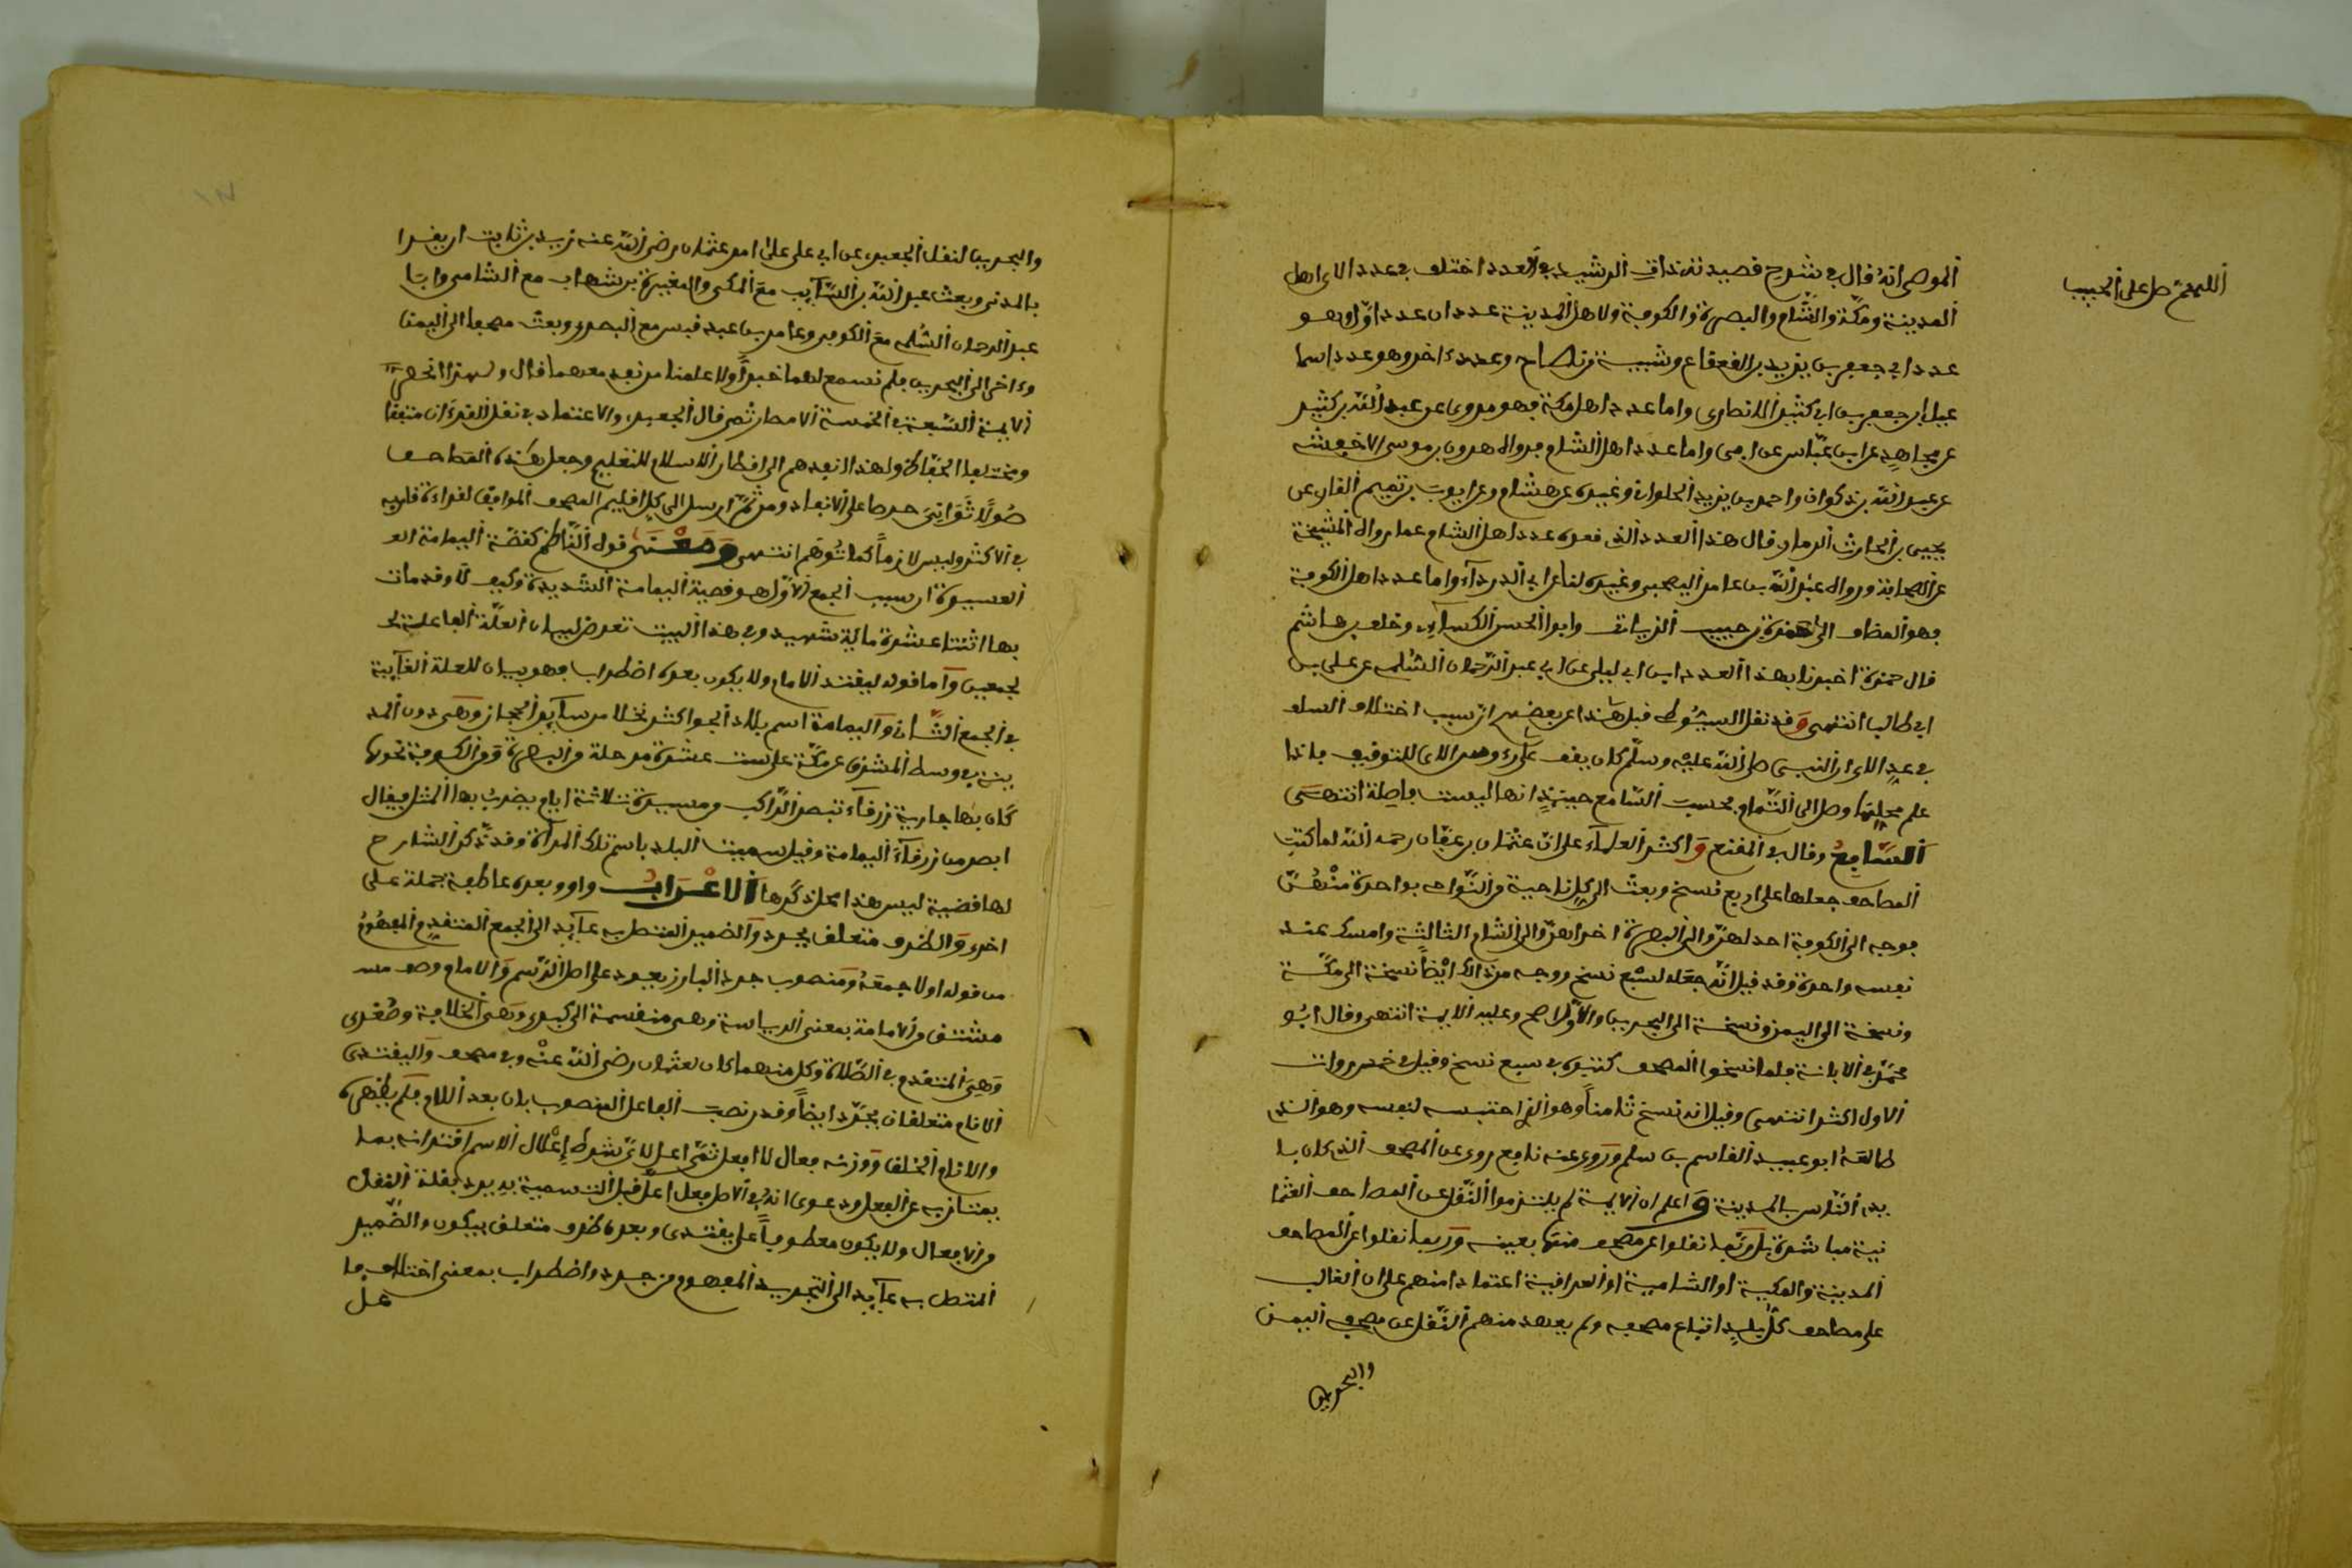 اللهم صل على الحبيب
الموصلى انه قال فى شرح قصيدته ذات الرشد فى العدد اختلف فى عدد الاى اهل
المدينة ومكة والشام والبصرة والكوفة ولاهل المدينة عددان عدد اول وهو
عدد ابى جعفر بن يزيد بن القعقاع وشيبة بن نصاح وعدد اخر وهو عدد اسما
عيل بن جعفر بن ابى كثير الانصارى واما عدد اهل مكة فهو مروى عن عبد الله بن كثير
عن مجاهد عن ابن عباس عن ابى واما عدد اهل الشام فرواه هرون بن موسى الاخفش
عن عبد الله بن ذكوان واحمد بن يزيد الحلوانى وغيره عن هشام وعن ايوب بن تميم القارى عن
يحيى بن الحارث الذمارى قال هذا العدد الذى نعده عدد اهل الشام مما رواه المشيخة
عن الصحابة ورواه عبد الله بن عامر اليحصبى وغيره لنا عن ابى الدرداء واما عدد اهل الكوفة
فهو المضاف الى حمزة بن حبيب الزيات وابو الحسن الكسائى وخلف بن هاشم
قال حمزة اخبرنا بهذا العدد ابن ابى ليلى عن ابى عبد الرحمان السلمى عن على بن
ابى طالب انتهى وقد نقل السيوطى قبل هذا عن بعضهم ان سبب اختلاف السلف
فى عدد الاى ان النبى صلى الله عليه وسلم كان يقف على رءوس الاى للتوقيف فاذا
علم محلها وصل الى التمام فحسب السامع حينئذ انها ليست فاصلة انتهى
السابع وقال فى المقنع واكثر العلماء على ان عثمان بن عفان رحمه الله لما كتب
المصاحف جعلها على اربع نسخ وبعث الى كل ناحية من النواحى بواحدة منهن
فوجه الى الكوفة احداهن والى البصرة اخراهن والى الشام الثالثة وامسك عند
نفسه واحدة وقد قيل انه جعله سبع نسخ ووجه من ذلك ايضا نسخة الى مكة
ونسخة الى اليمن ونسخة الى البحرين والاول اصح وعليه الايمة انتهى وقال ابو
محمد فى الابانة فلما نسخوا المصحف كتبوه فى سبع نسخ وقيل فى خمس ورواة
الاول اكثر انتهى وقيل انه نسخ ثامنا وهو الذى احتبسه لنفسه وهو الذى
طالعه ابو عبيد القاسم بن سلام وروى عنه نافع روى عن المصحف الذى كان با
يدى الناس بالمدينة واعلم ان الايمة لم يلتزموا النقل عن المصاحف العثما
نية مباشرة بل ربما نقلوا عن مصحف منها بعينه وربما نقلوا عن المصاحف
المدينة والمكية او الشامية او العراقية اعتمادا منهم على ان الغالب
على مصاحف كل بلد اتباع مصحفه ولم يعهد منهم النقل عن مصحف اليمن
والبحرين
والبحرين لنقل الجعبرى عن ابى على على امر عثمان رضى الله عنه زيد بن ثابت ان يقرا
بالمدنى وبعث عبد الله بن السائب مع المكى والمغيرة بن شهاب مع الشامى وابا
عبد الرحمان السلمى مع الكوفى وعامر بن عبد قيس مع البصرى وبعث مصحفا الى اليمن
وءاخر الى البحرين فلم نسمع لهما خبرا ولا علمنا من نفد معهما قال ولهذا انحصر
الايمة السبعة فى الخمسة الامصار ثم قال الجعبرى والاعتماد فى نقل القرءان متفقا
ومختلفا الحفاظ ولهذا انفدهم الى اقطار الاسلام للتعليم وجعل هذه المصاحف
اصولا ثوانى حرصا على الانفاد ومن ثم ارسل الى كل اقليم المصحف الموافق لقراءة قاريه
فى الاكثر وليس لازما كما توهم انتهى ومعنى قول الناظم كقصة اليمامة العـ
العسيرة ان سبب الجمع الاول هو قصية اليمامة الشديدة وكيف لا وقد مات
بها اثنتا عشرة ماية شهيد وفى هذا البيت تعرض لبيان العلة الباعثة
لجمعين واما قوله ليقتد الانام ولا يكون بعده اضطراب فهو بيان للعلة الغايية
فى الجمع الثان واليمامة اسم بلاد الجو اكثر نخلا من ساير الحجاز وهى دون المد
ينة فى وسط المشرق عن مكة على ست عشرة مرحلة من البصرة ومن الكوفة نحوها
كان بها جارية زرقاء تبصر الراكب من مسيرة ثلاثة ايام يضرب بها المثل فيقال
ابصر من زرقاء اليمامة وقيل سميت البلد باسم تلك المراة وقد ذكر الشارح
لها قضية ليس هذا محل ذكرها الاعراب واو وبعده عاطفة جملة على
اخرى والظرف متعلق بجرد والضمير المتصل به عايد الى الجمع المتقدم المفهوم
من قوله اولا جمعه ومنصوب جرده البارز يعود على اصل الرسم والامام وصف
مشتق من الامامة بمعنى الرياسة وهى منقسمة الى كبرى وهى الخلافة وصغرى
وهى المتقدم فى الصلاة وكل منهما كان لعثمان رضى الله عنه وفى مصحف وليقتدى
الانام متعلقان بجرد ايضا وقدر نصب الفاعل المنصوب بان بعد اللام فلم يظهره
والانام الخلق ووزنه فعال لا افعل ثم اعل لان شرط اعلال الاسم اقترانه بما
يمتاز به عن الفعل ودعوى انه فى الاصل فعل اعل قبل التسمية به يرد بقلة النقل
من الافعال ولا يكون معطوفا على يقتدى وبعده ظرف متعلق بيكون والضمير
المتصل به عايد الى التجريد المفهوم من جرده واضطراب بمعنى اختلاف فا
عل